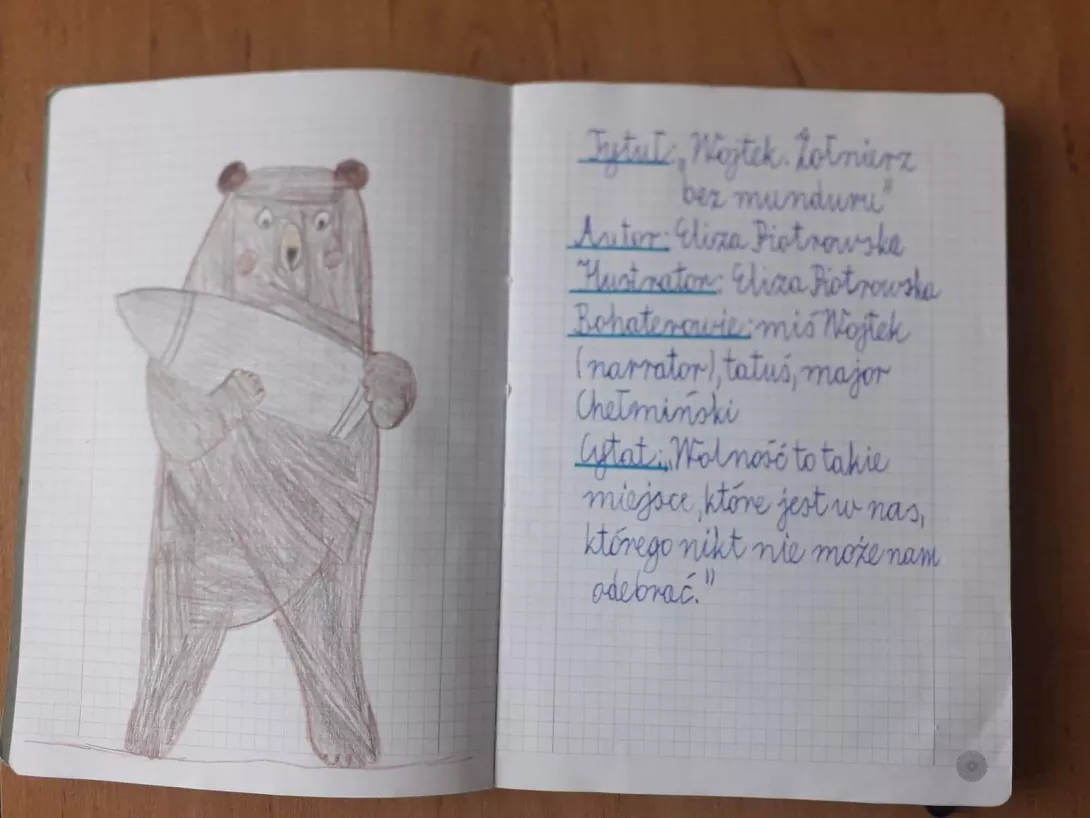 Tytuł: „Wojtek. Żołnierz
bez munduru"
Autor: Eliza Piotrowska
Ilustrator: Eliza Piotrowska
Bohaterowie: miś Wojtek
(narrator), tatuś, major
Chełmiński
Cytat: „Wolność to takie
miejsce, które jest w nas,
którego nikt nie może nam
odebrać."